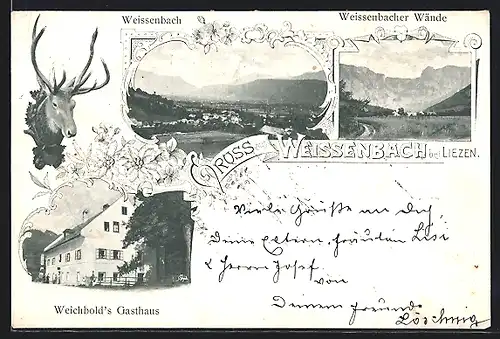 Weissenbach
Weissenbacher Wände
GRUSS
WEISSENBACH bei LIEZEN.
Viele Grüße an Dich,
Deine Eltern, Fräulein Lisi
& Herrn Josef
von
Deinem Freunde
Weichbold's Gasthaus